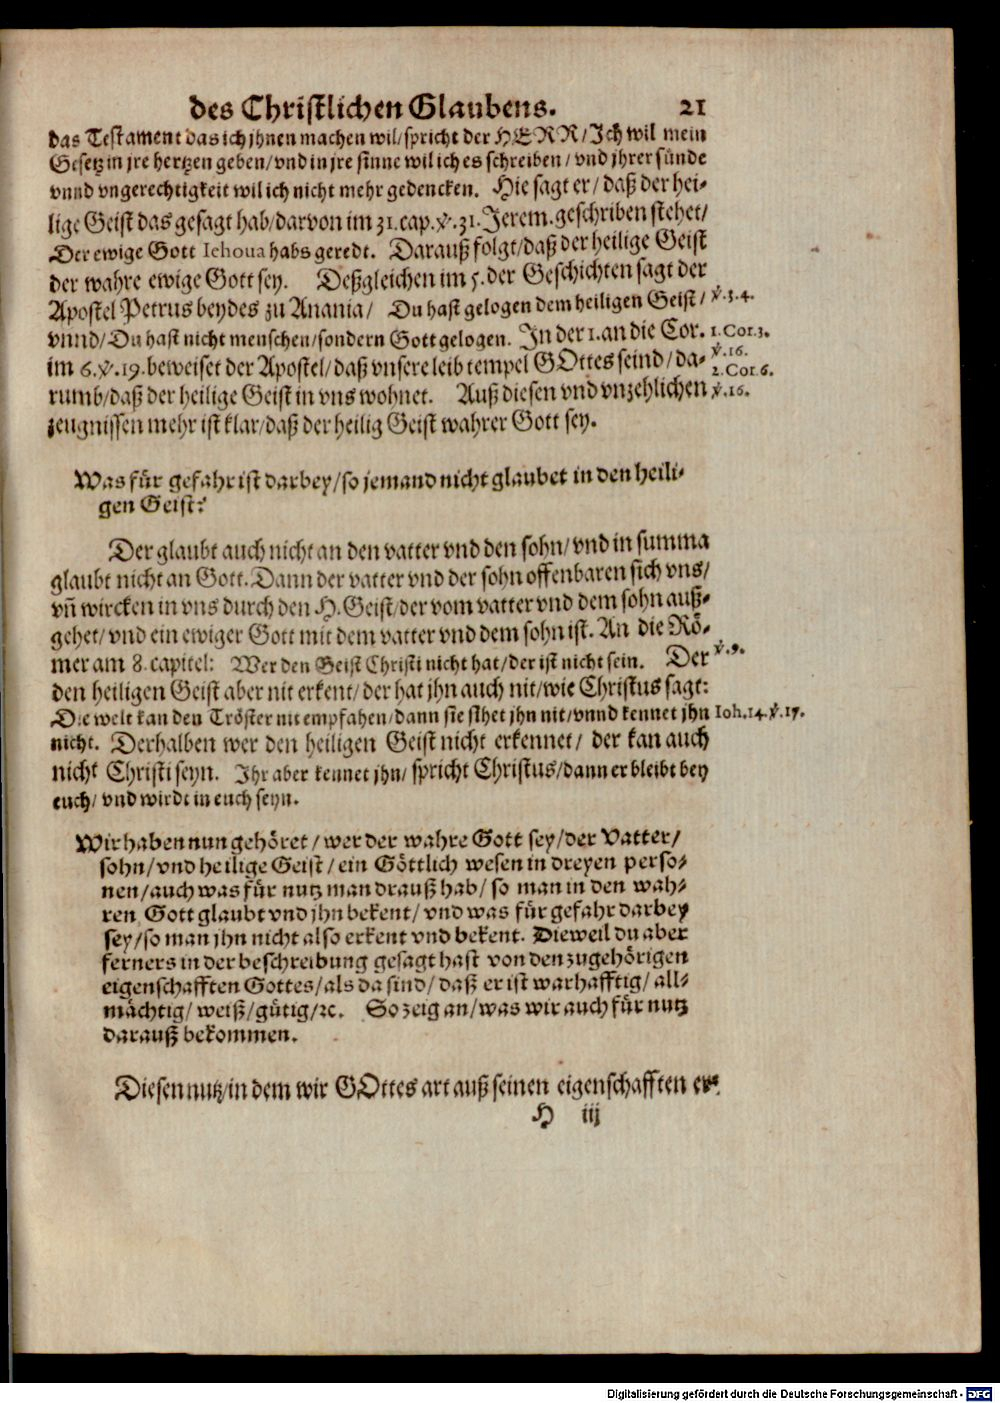 des Christlichen Glaubens. 21
das Testament das ich jhnen machen wil/spricht der HERR/Ich wil mein
Gesetz in jre hertzen geben/vnd in jre sinne wil ich es schreiben/vnd jhrer sünde
vnnd vngerechtigkeit wil ich nicht mehr gedencken. Hie sagt er/daß der hei-
lige Geist das gesagt hab/darvon im 31.cap.v.31.Jerem.geschriben stehet/
Der ewige Gott Iehoua habs geredt. Darauß folgt/daß der heilige Geist
der wahre ewige Gott sey. Deßgleichen im 5.der Geschichten sagt der
Apostel Petrus beydes zu Anania/ Du hast gelogen dem heiligen Geist/ v.3.4.
vnnd/Du hast nicht menschen/sondern Gott gelogen. In der 1.an die Cor. 1.Cor.3.
v.16.
im 6.v.19.beweiset der Apostel/daß vnsere leib tempel GOttes seind/da- 2.Cor.6.
rumb/daß der heilige Geist in vns wohnet. Auß diesen vnd vnzehlichen v.16.
zeugnissen mehr ist klar/daß der heilig Geist wahrer Gott sey.
Was für gefahr ist darbey/so jemand nicht glaubet in den heili-
gen Geist?
Der glaubt auch nicht an den vatter vnd den sohn/vnd in summa
glaubt nicht an Gott. Dann der vatter vnd der sohn offenbaren sich vns/
vn̄ wircken in vns durch den H.Geist/der vom vatter vnd dem sohn auß-
gehet/vnd ein ewiger Gott mit dem vatter vnd dem sohn ist. An die Rö-
mer am 8.capitel: Wer den Geist Christi nicht hat/der ist nicht sein. Der v.9.
den heiligen Geist aber nit erkent/der hat jhn auch nit/wie Christus sagt:
Die welt kan den Tröster nit empfahen/dann sie sihet jhn nit/vnnd kennet jhn Ioh.14.v.17.
nicht. Derhalben wer den heiligen Geist nicht erkennet/ der kan auch
nicht Christi seyn. Ihr aber kennet jhn/ spricht Christus/dann er bleibt bey
euch/ vnd wirdt in euch seyn.
Wir haben nun gehöret/wer der wahre Gott sey/der Vatter/
sohn/vnd heilige Geist/ein Göttlich wesen in dreyen perso-
nen/auch was für nutz man drauß hab/ so man in den wah-
ren Gott glaubt vnd jhn bekent/vnd was für gefahr darbey
sey/so man jhn nicht also erkent vnd bekent. Dieweil du aber
ferners in der beschreibung gesagt hast von den zugehörigen
eigenschafften Gottes/als da sind/daß er ist warhafftig/all-
mächtig/weiß/gütig/ꝛc. So zeig an/was wir auch für nutz
darauß bekommen.
Diesen nutz/in dem wir GOttes art auß seinen eigenschafften er-
H iij
Digitalisierung gefördert durch die Deutsche Forschungsgemeinschaft - DFG